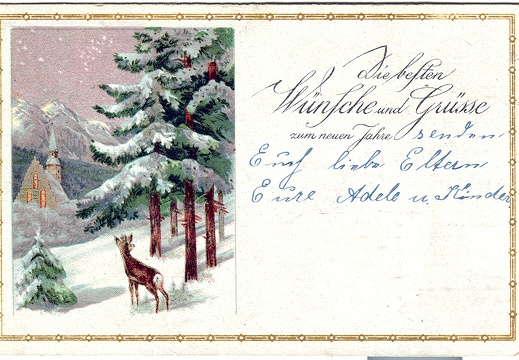 Die besten
Wünsche und Grüsse
zum neuen Jahre senden
Euch liebe Eltern
Eure Adele u. Kinder